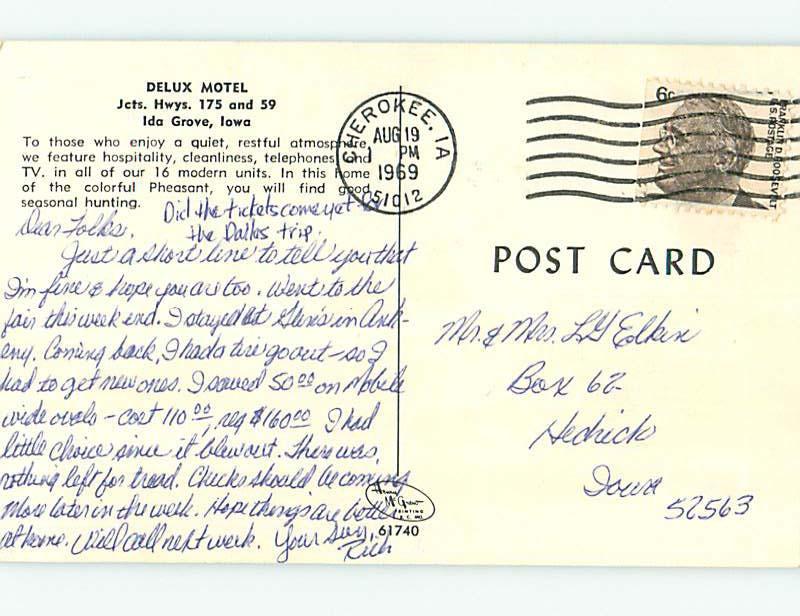 DELUX MOTEL
Jcts. Hwys. 175 and 59
Ida Grove, Iowa
To those who enjoy a quiet, restful atmosphere,
we feature hospitality, cleanliness, telephones and
TV. in all of our 16 modern units. In this home
of the colorful Pheasant, you will find good
seasonal hunting.
Did the tickets come yet to
the Dallas trip.
Dear Folks,
Just a short line to tell you that
I'm fine & hope you are too. Went to the
fair this week end. I stayed at in Ank-
eny. Coming back, I had a tire go out - so I
had to get new ones. I saved 50 00 on Mobile
wide ovals - cost 110 00, reg $160 00 I had
little choice since it blew out. There was
nothing left for tread. Checks should be coming
More later in the week. Hope things are better
at home. Will call next week. Your Son,
Rich
CHEROKEE, IA
AUG 19
PM
1969
51012
6c
FRANKLIN D. ROOSEVELT
U.S. POSTAGE
POST CARD
Mr. & Mrs. LG Elkin
Box 62
Hedrick
Iowa
52563
Henry
McGrew
PRINTING
K.C. MO.
61740